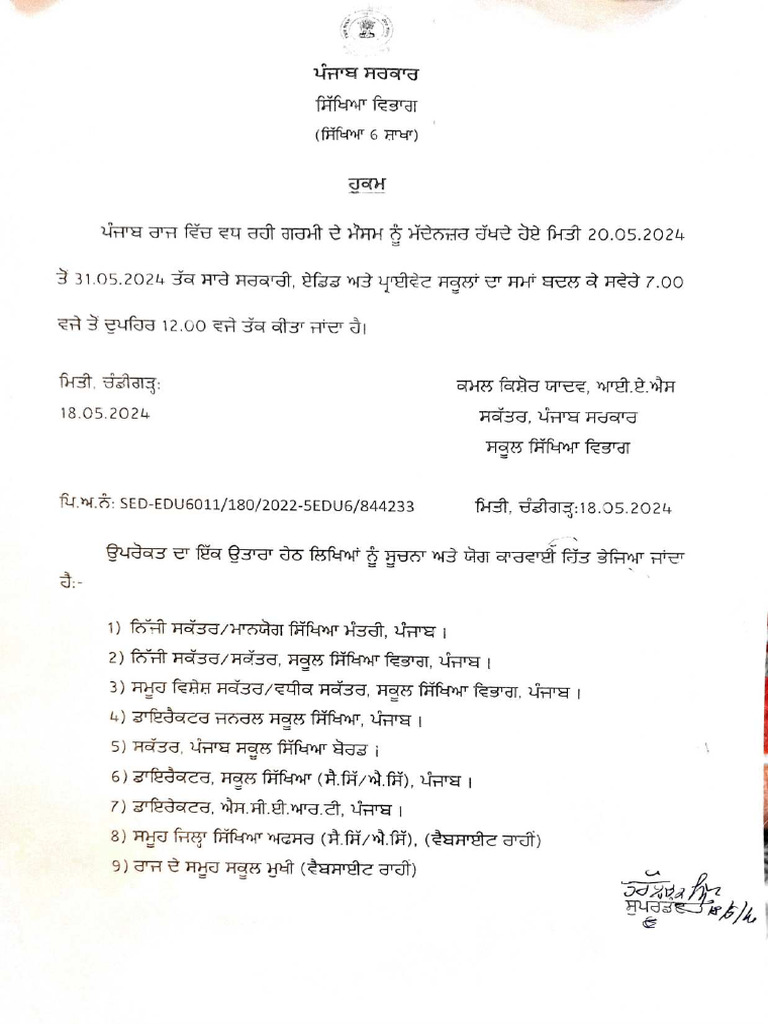 ਪੰਜਾਬ ਸਰਕਾਰ
ਸਿੱਖਿਆ ਵਿਭਾਗ
(ਸਿੱਖਿਆ 6 ਸ਼ਾਖਾ)
ਹੁਕਮ
ਪੰਜਾਬ ਰਾਜ ਵਿੱਚ ਵਧ ਰਹੀ ਗਰਮੀ ਦੇ ਮੌਸਮ ਨੂੰ ਮੱਦੇਨਜ਼ਰ ਰੱਖਦੇ ਹੋਏ ਮਿਤੀ 20.05.2024
ਤੋਂ 31.05.2024 ਤੱਕ ਸਾਰੇ ਸਰਕਾਰੀ, ਏਡਿਡ ਅਤੇ ਪ੍ਰਾਈਵੇਟ ਸਕੂਲਾਂ ਦਾ ਸਮਾਂ ਬਦਲ ਕੇ ਸਵੇਰੇ 7.00
ਵਜੇ ਤੋਂ ਦੁਪਹਿਰ 12.00 ਵਜੇ ਤੱਕ ਕੀਤਾ ਜਾਂਦਾ ਹੈ।
ਮਿਤੀ, ਚੰਡੀਗੜ੍ਹ:
18.05.2024
ਕਮਲ ਕਿਸ਼ੋਰ ਯਾਦਵ, ਆਈ.ਏ.ਐਸ
ਸਕੱਤਰ, ਪੰਜਾਬ ਸਰਕਾਰ
ਸਕੂਲ ਸਿੱਖਿਆ ਵਿਭਾਗ
ਪਿ.ਅ.ਨੰ: SED-EDU6011/180/2022-5EDU6/844233 ਮਿਤੀ, ਚੰਡੀਗੜ੍ਹ:18.05.2024
ਉਪਰੋਕਤ ਦਾ ਇੱਕ ਉਤਾਰਾ ਹੇਠ ਲਿਖਿਆਂ ਨੂੰ ਸੂਚਨਾ ਅਤੇ ਯੋਗ ਕਾਰਵਾਈ ਹਿੱਤ ਭੇਜਿਆ ਜਾਂਦਾ
ਹੈ:-
1) ਨਿੱਜੀ ਸਕੱਤਰ/ਮਾਨਯੋਗ ਸਿੱਖਿਆ ਮੰਤਰੀ, ਪੰਜਾਬ ।
2) ਨਿੱਜੀ ਸਕੱਤਰ/ਸਕੱਤਰ, ਸਕੂਲ ਸਿੱਖਿਆ ਵਿਭਾਗ, ਪੰਜਾਬ ।
3) ਸਮੂਹ ਵਿਸ਼ੇਸ਼ ਸਕੱਤਰ/ਵਧੀਕ ਸਕੱਤਰ, ਸਕੂਲ ਸਿੱਖਿਆ ਵਿਭਾਗ, ਪੰਜਾਬ ।
4) ਡਾਇਰੈਕਟਰ ਜਨਰਲ ਸਕੂਲ ਸਿੱਖਿਆ, ਪੰਜਾਬ ।
5) ਸਕੱਤਰ, ਪੰਜਾਬ ਸਕੂਲ ਸਿੱਖਿਆ ਬੋਰਡ ।
6) ਡਾਇਰੈਕਟਰ, ਸਕੂਲ ਸਿੱਖਿਆ (ਸੈ.ਸਿੱ/ਐ.ਸਿੱ), ਪੰਜਾਬ ।
7) ਡਾਇਰੇਕਟਰ, ਐਸ.ਸੀ.ਈ.ਆਰ.ਟੀ, ਪੰਜਾਬ ।
8) ਸਮੂਹ ਜਿਲ੍ਹਾ ਸਿੱਖਿਆ ਅਫਸਰ (ਸੈ.ਸਿੱ/ਐ.ਸਿੱ), (ਵੈਬਸਾਈਟ ਰਾਹੀਂ)
9) ਰਾਜ ਦੇ ਸਮੂਹ ਸਕੂਲ ਮੁਖੀ (ਵੈਬਸਾਈਟ ਰਾਹੀਂ)